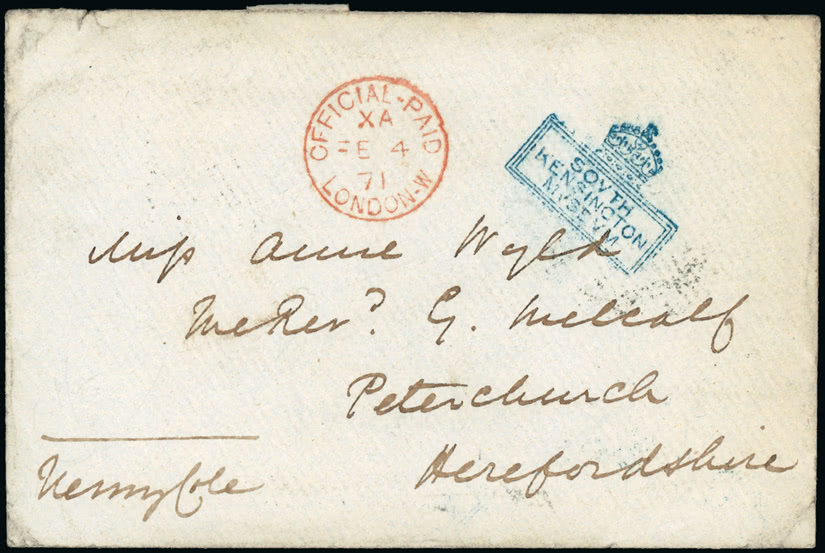 OFFICIAL-PAID
XA
FE 4
71
LONDON-W
SOVTH
KENSINGTON
MVSEVM
Miss Anne Wyld
The Revd. G. Metcalf
Peterchurch
Herefordshire
Henry Cole